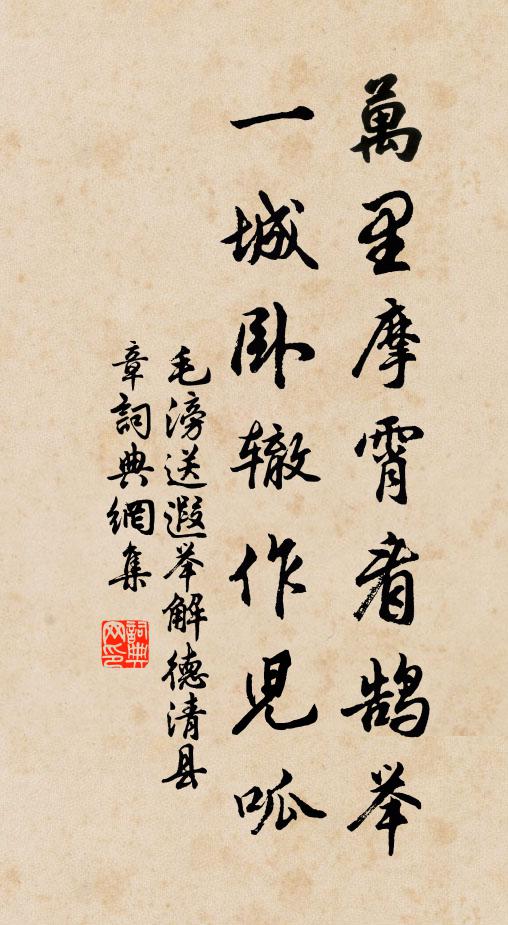 萬里摩霄看鹄举
一城卧辙作児呱
毛滂送遐举解德清县
章詞典網集
詞典網印